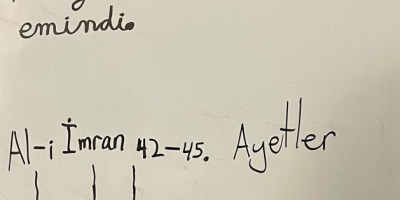 emindi.
Al-i İmran 42-45. Ayetler